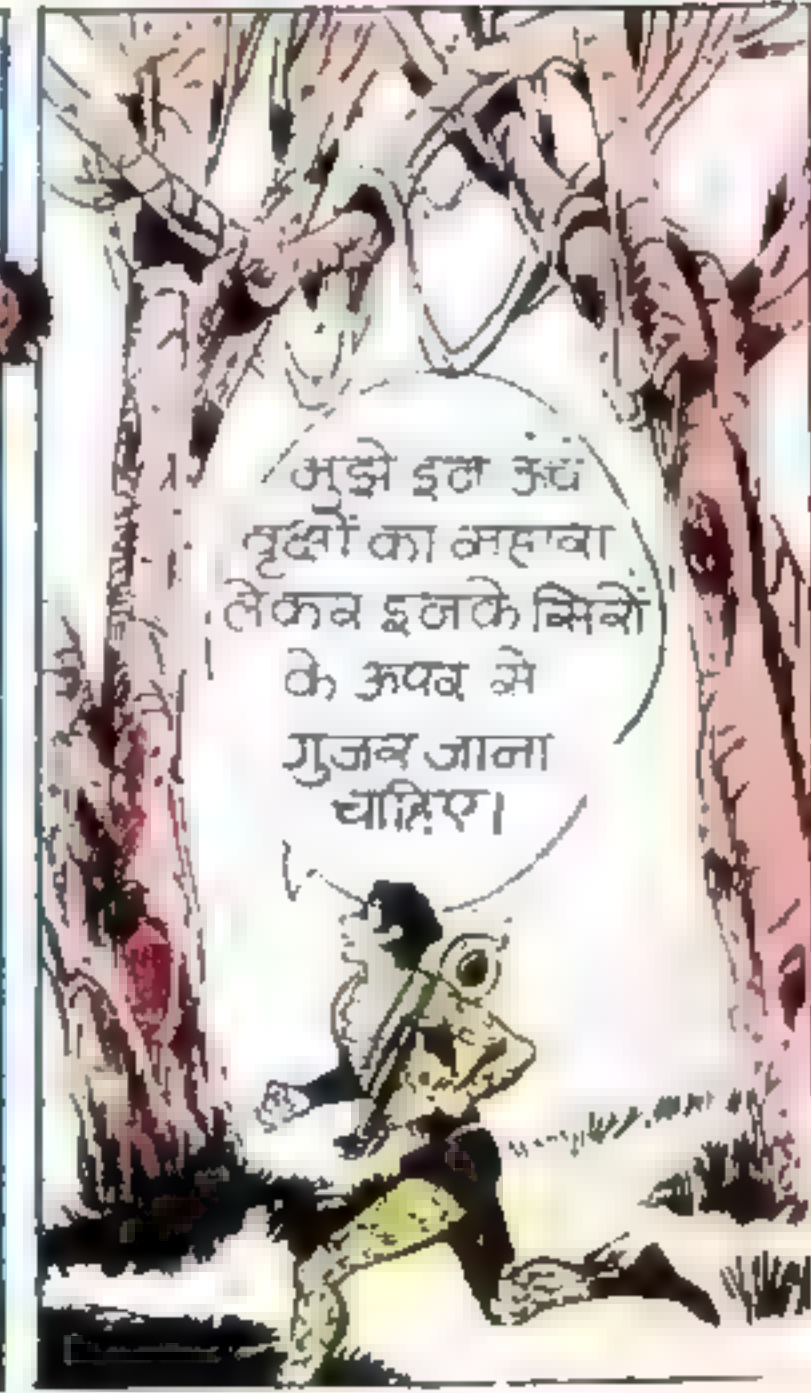 मुझे इन ऊंचे
वृक्षों का सहारा
लेकर इनके सिरों
के ऊपर से
गुजर जाना
चाहिए।